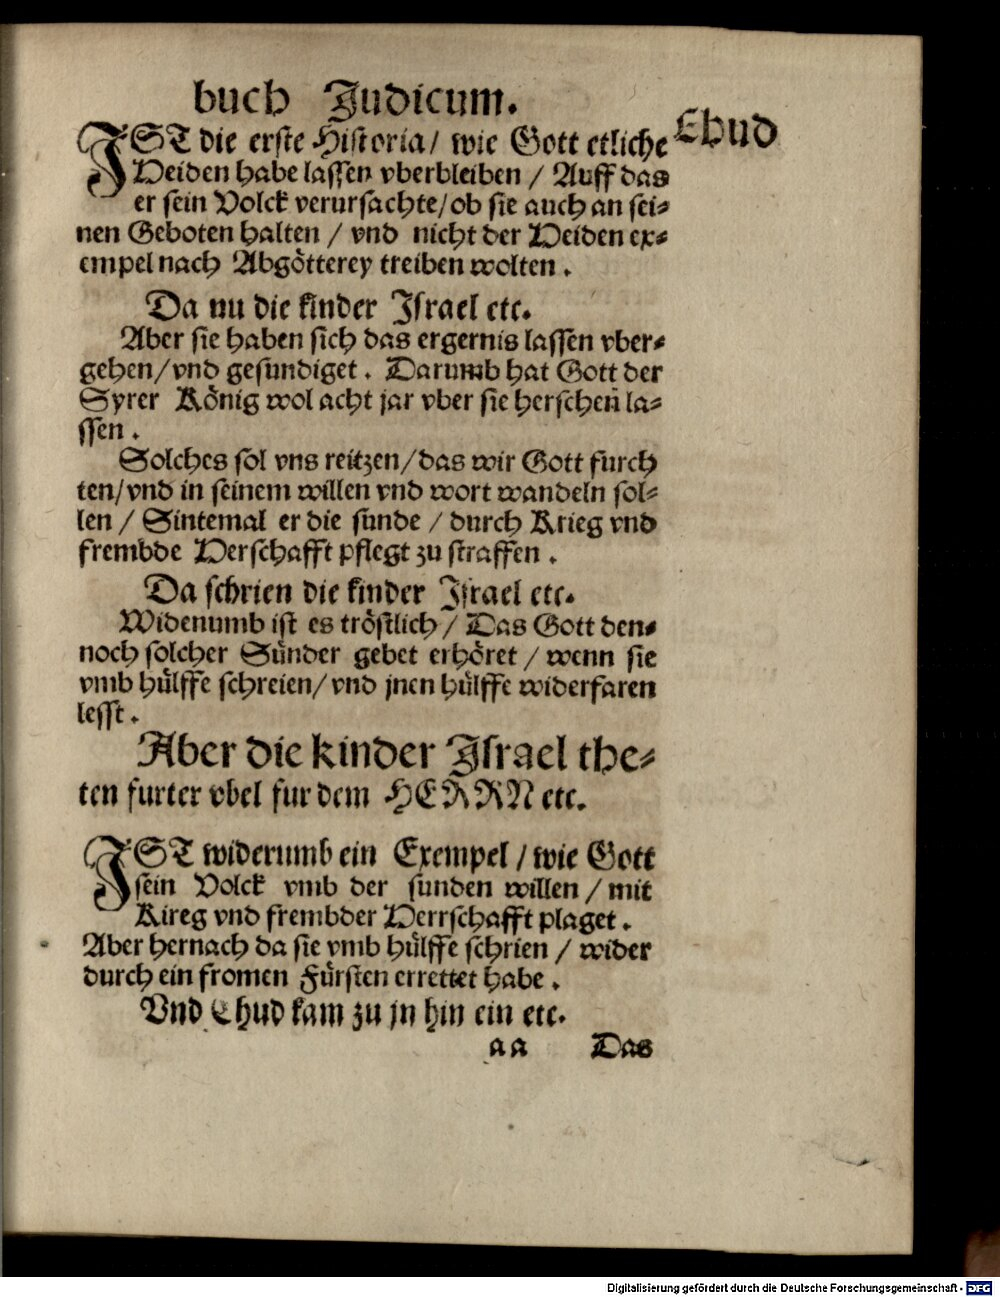 buch Judicum.
Ehud
IST die erste Historia/ wie Gott etliche
Heiden habe lassen vberbleiben / Auff das
er sein Volck verursachte/ob sie auch an sei=
nen Geboten halten / vnd nicht der Heiden ex=
empel nach Abgötterey treiben wolten .
Da nu die kinder Israel etc.
Aber sie haben sich das ergernis lassen vber=
gehen/vnd gesundiget . Darumb hat Gott der
Syrer König wol acht jar vber sie herschen la=
ssen .
Solches sol vns reitzen/das wir Gott furch
ten/vnd in seinem willen vnd wort wandeln sol=
len / Sintemal er die sunde / durch Krieg vnd
frembde Herschafft pflegt zu straffen .
Da schrien die kinder Israel etc.
Widenumb ist es tröstlich / Das Gott den=
noch solcher Sünder gebet erhöret / wenn sie
vmb hülffe schreien/vnd jnen hülffe widerfaren
lesst .
Aber die kinder Israel the=
ten furter vbel fur dem HERRN etc.
IST widerumb ein Exempel / wie Gott
sein Volck vmb der sunden willen / mit
Kireg vnd frembder Herrschafft plaget .
Aber hernach da sie vmb hülffe schrien / wider
durch ein fromen Fürsten errettet habe .
Vnd Ehud kam zu jn hin ein etc.
aa Das
Digitalisierung gefördert durch die Deutsche Forschungsgemeinschaft - DFG